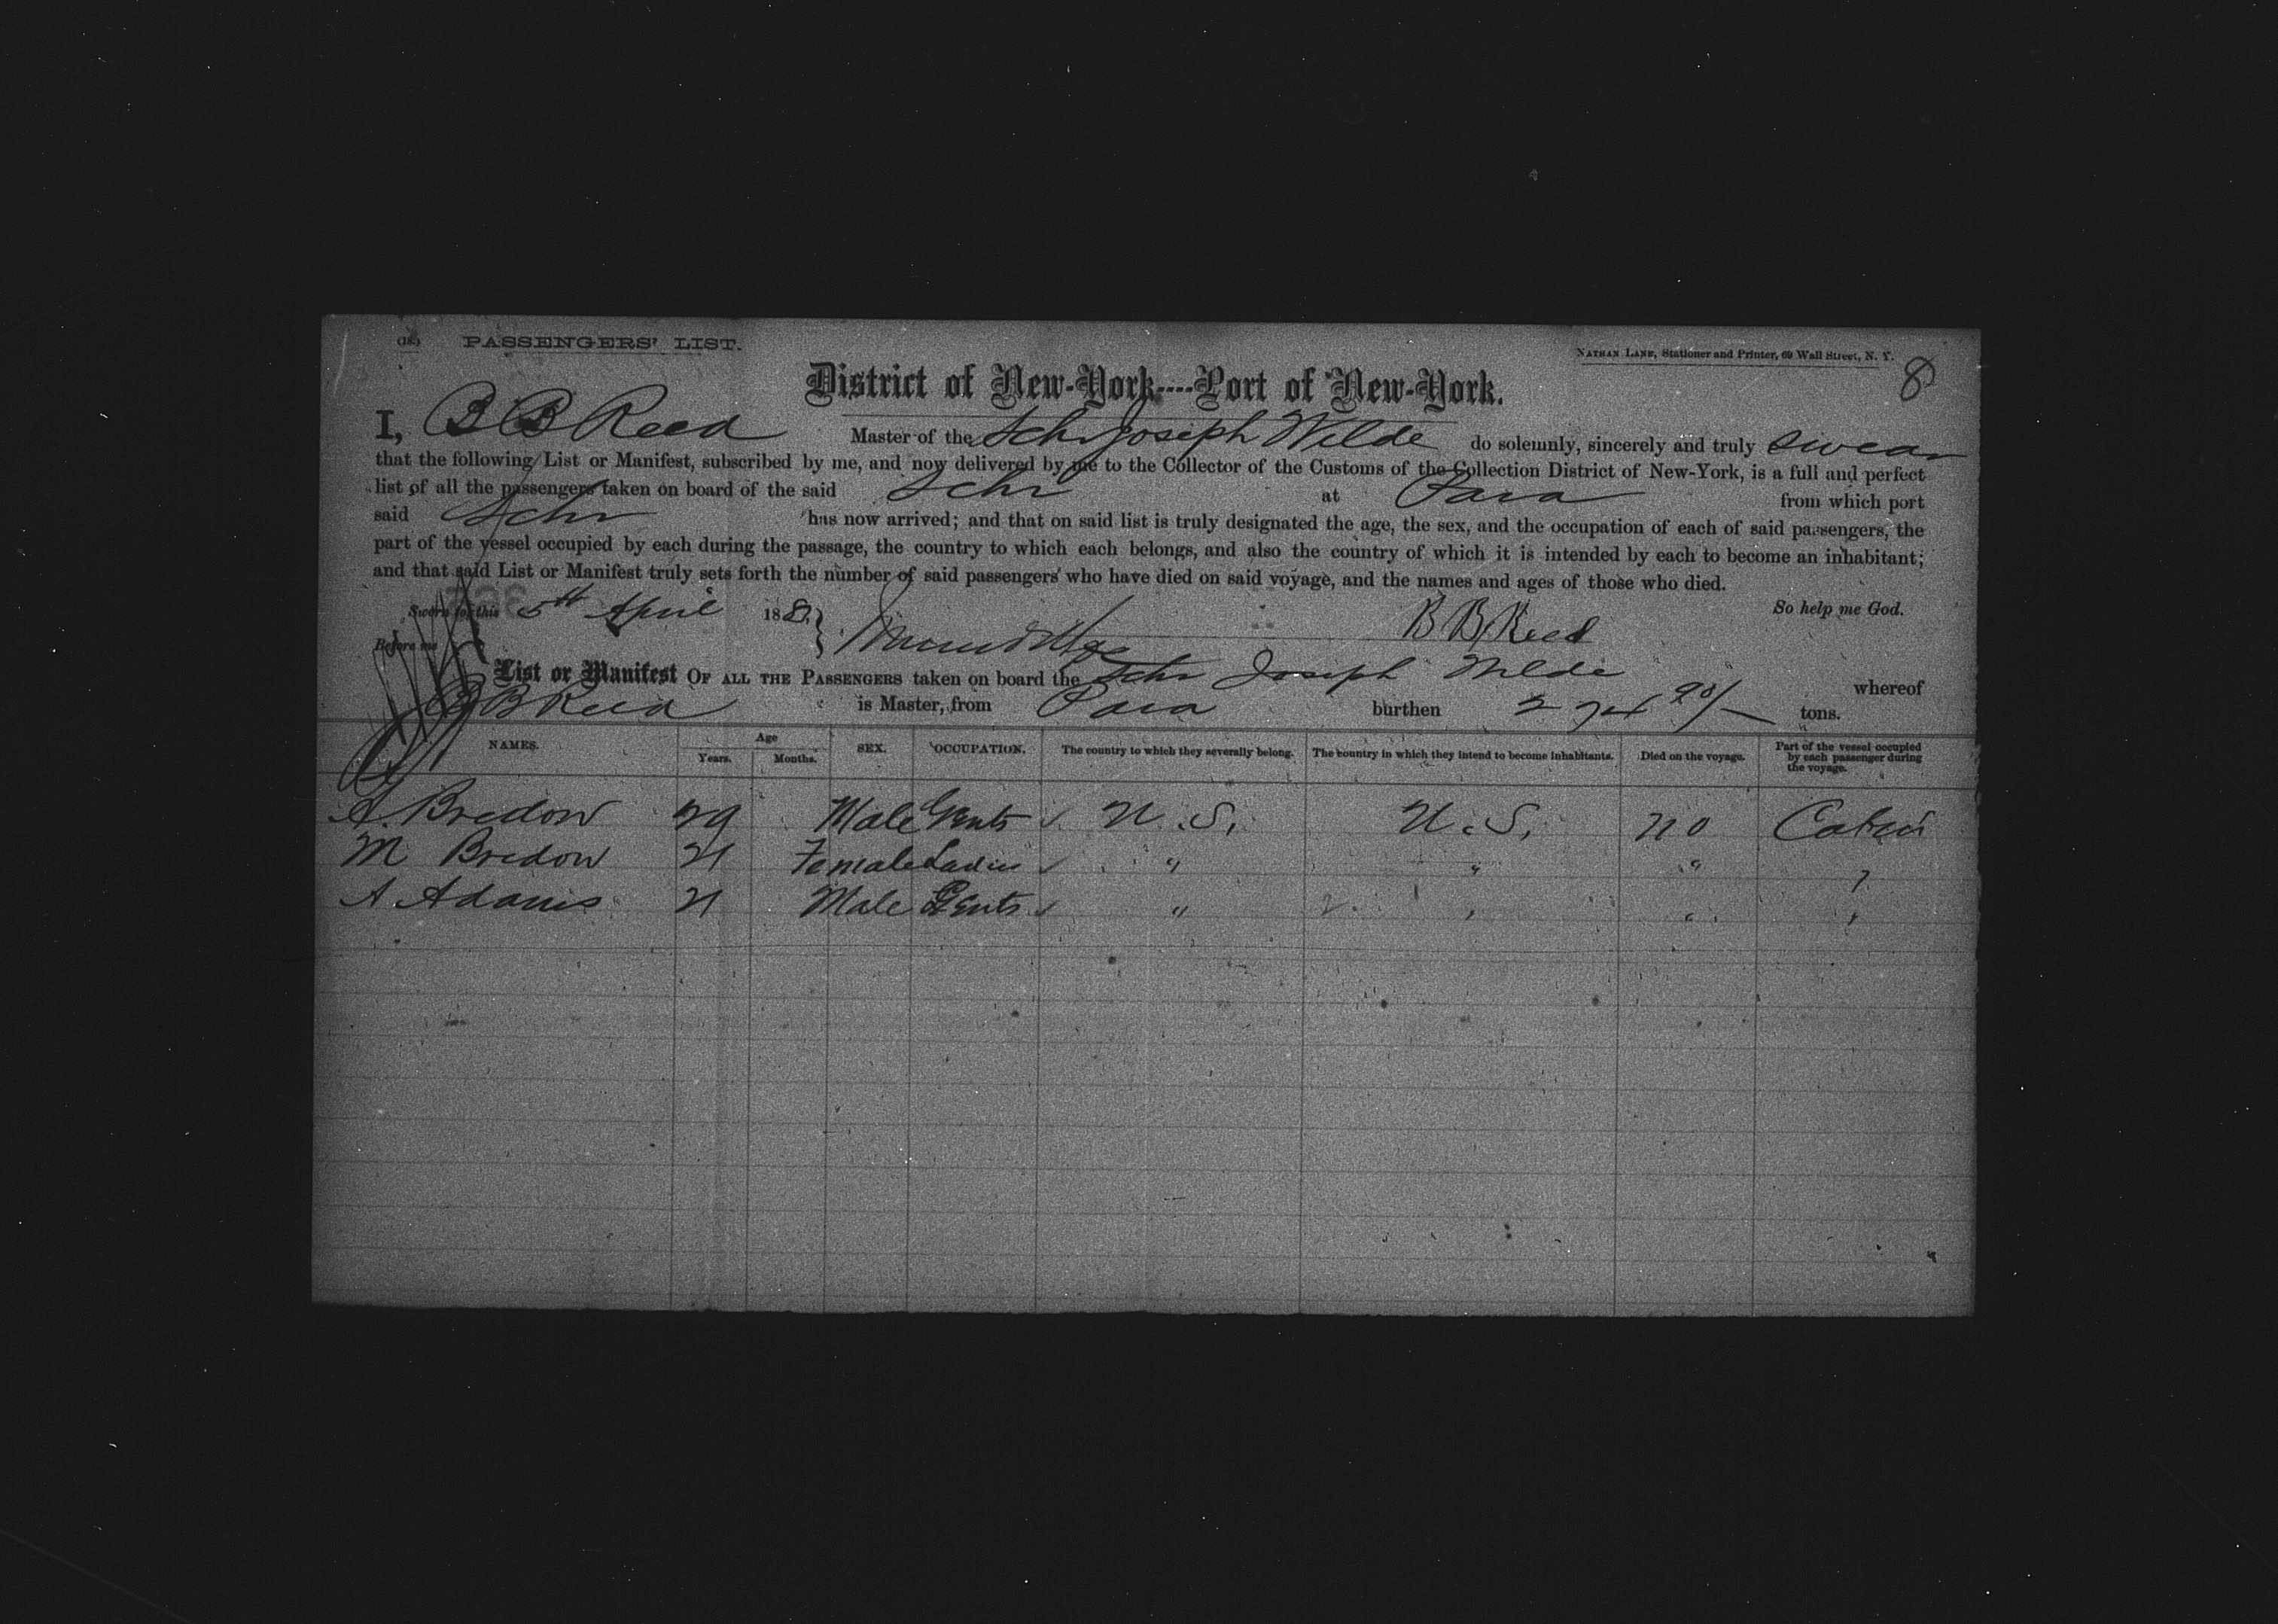 PASSENGERS' LIST.
NATHAN LANE, Stationer and Printer, 69 Wall Street, N. Y.
8
District of New-York----Port of New-York.
I, B B Reed Master of the Schr Joseph Wilde do solemnly, sincerely and truly swear
that the following List or Manifest, subscribed by me, and now delivered by me to the Collector of the Customs of the Collection District of New-York, is a full and perfect
list of all the passengers taken on board of the said Schr at Para from which port
said Schr has now arrived; and that on said list is truly designated the age, the sex, and the occupation of each of said passengers, the
part of the vessel occupied by each during the passage, the country to which each belongs, and also the country of which it is intended by each to become an inhabitant;
and that said List or Manifest truly sets forth the number of said passengers who have died on said voyage, and the names and ages of those who died.
Sworn to this 5th April 188 B B Reed So help me God.
Before me
List or Manifest OF ALL THE PASSENGERS taken on board the Schr Joseph Wilde whereof
B B Reed is Master, from Para burthen tons.
NAMES. Age Years. Months. SEX. OCCUPATION. The country to which they severally belong. The country in which they intend to become inhabitants. Died on the voyage. Part of the vessel occupied by each passenger during the voyage.
A. Bredow 29 Male Gents U.S. U.S. no Cabin
M Bredow 21 Female Ladies " " " "
A Adams 21 Male Gents " " " "